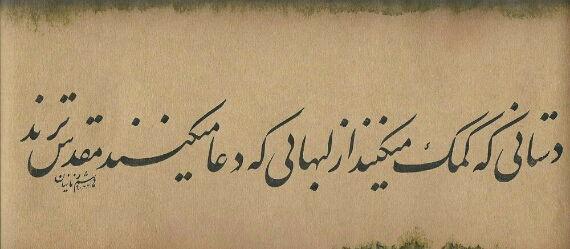 دستانی که کمک میکنند از لبهایی که دعا میکنند مقدس ترند